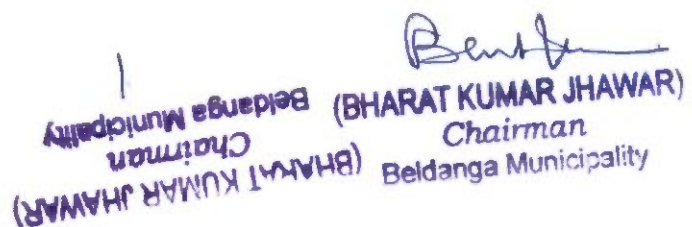 (BHARAT KUMAR JHAWAR)
Chairman
Beldanga Municipality
(BHARAT KUMAR JHAWAR)
Chairman
Beldanga Municipality